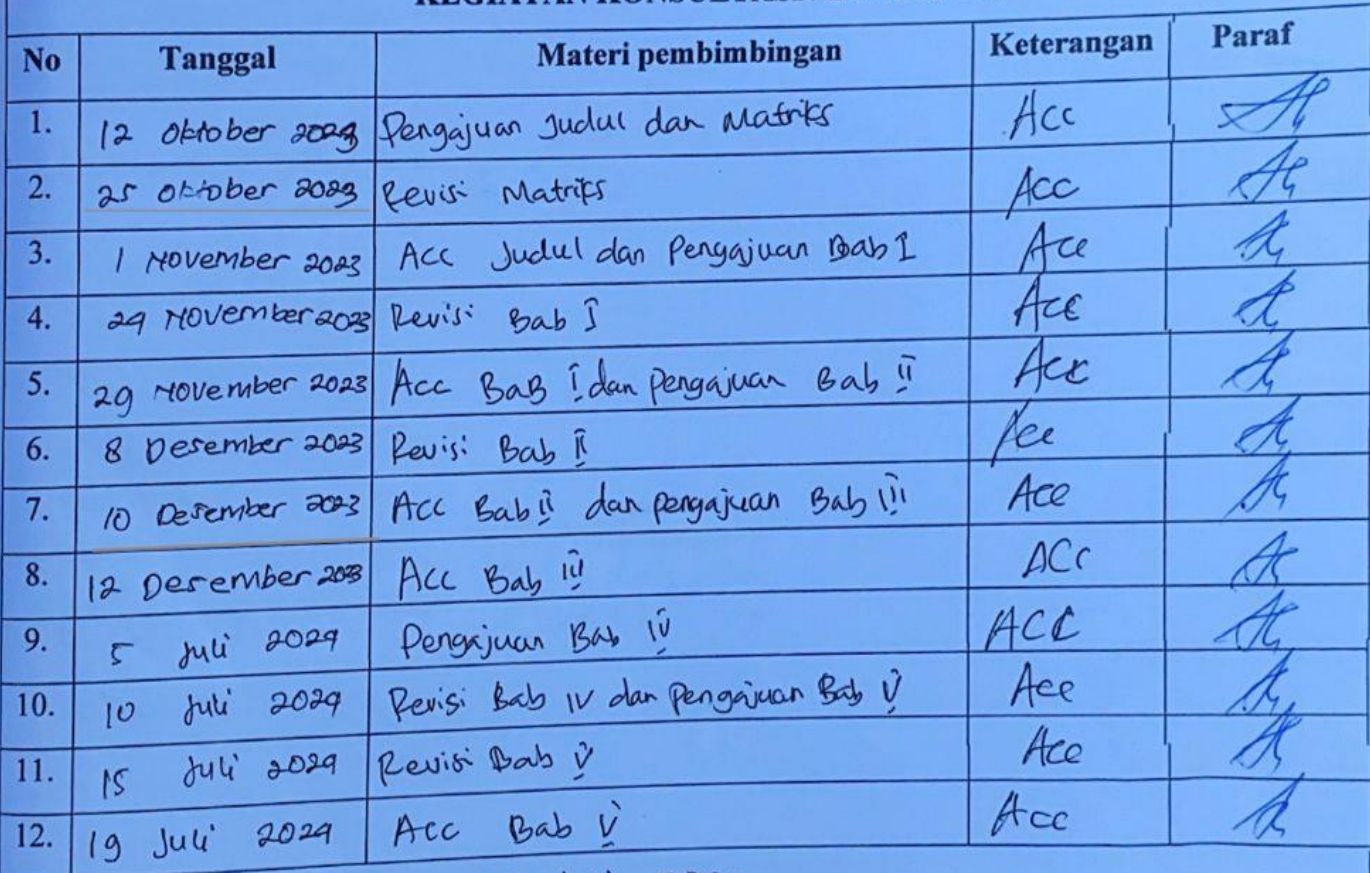 No Tanggal Materi pembimbingan Keterangan Paraf
1. 12 Oktober 2023 Pengajuan Judul dan Matriks Acc
2. 25 Oktober 2023 Revisi Matriks Acc
3. 1 November 2023 Acc Judul dan Pengajuan Bab I Acc
4. 24 November 2023 Revisi Bab I Acc
5. 29 November 2023 Acc BaB I dan pengajuan Bab II Acc
6. 8 Desember 2023 Revisi Bab II Acc
7. 10 Desember 2023 Acc Bab II dan pengajuan Bab III Acc
8. 12 Desember 2023 Acc Bab III ACC
9. 5 Juli 2024 Pengajuan Bab IV ACC
10. 10 Juli 2024 Revisi Bab IV dan Pengajuan Bab V Acc
11. 15 Juli 2024 Revisi Bab V Acc
12. 19 Juli 2024 Acc Bab V Acc